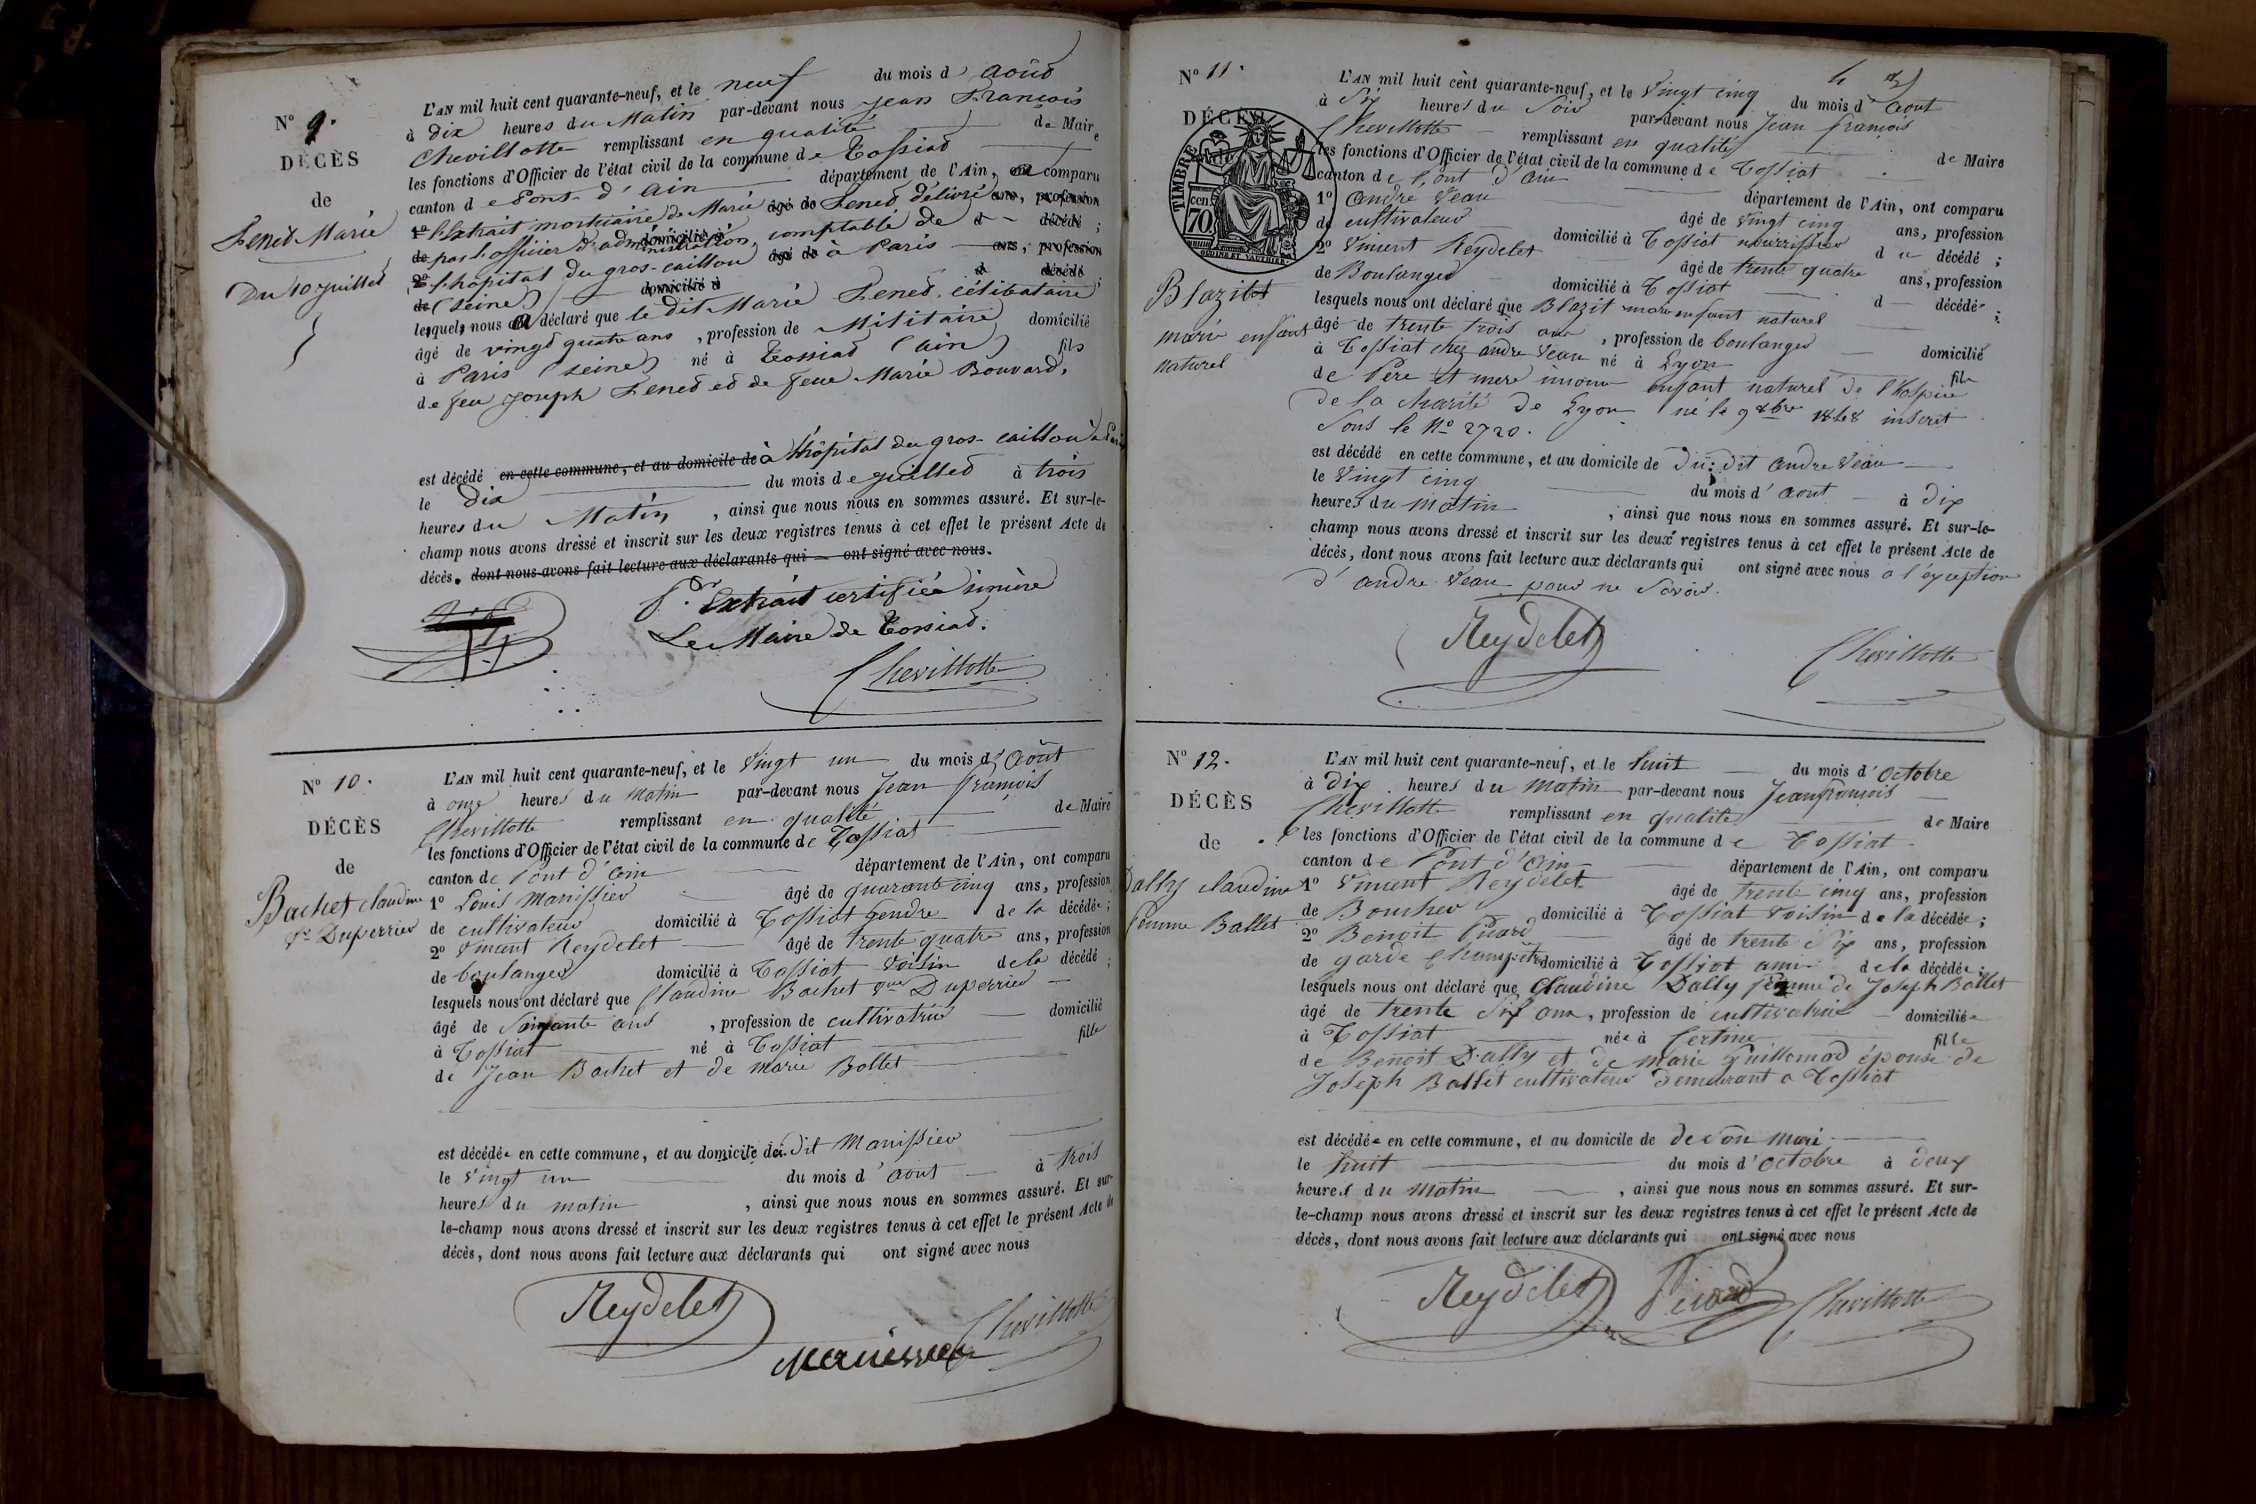 N° 9.
DÉCÈS
de
Fenet Marie
Du 10 juillet
L'AN mil huit cent quarante-neuf, et le neuf du mois d'août
à dix heures du Matin par-devant nous Jean François
Chevillotte remplissant en qualité de Maire
les fonctions d'Officier de l'état civil de la commune de Tossiat
canton de Pont d'ain département de l'Ain, comparu
1° l'Extrait mortuaire de Marie âgé de Fenet délivré ans, profession
de par l'officier d'administration, domicilié à comptable de d décédé ;
2° l'hôpital du gros-caillou âgé de à Paris ans, profession
de (seine) domicilié à d décédé ;
lesquels nous a déclaré que le dit Marie Fenet, célibataire
âgé de vingt quatre ans, profession de Militaire domicilié
à Paris (seine) né à Tossiat (ain) fils
de feu Joseph Fenet et de feue Marie Bouvard.
est décédé en cette commune, et au domicile de à l'hôpital du gros-caillou à Paris
le dix du mois de juillet à trois
heures du Matin, ainsi que nous nous en sommes assuré. Et sur-le-
champ nous avons dressé et inscrit sur les deux registres tenus à cet effet le présent Acte de
décès, dont nous avons fait lecture aux déclarants qui ont signé avec nous.
Pr Extrait certifiée sincère
Le Maire de Tossiat.
Chevillotte
N° 10.
DÉCÈS
de
Bachet claudine
ve Duperrier
L'AN mil huit cent quarante-neuf, et le Vingt un du mois d'Août
à onze heures du Matin par-devant nous Jean françois
Chevillotte remplissant en qualité de Maire
les fonctions d'Officier de l'état civil de la commune de Tossiat
canton de Pont d'ain département de l'Ain, ont comparu
1° Louis Manissier âgé de quarante cinq ans, profession
de cultivateur domicilié à Tossiat gendre de la décédée ;
2° Vincent Reydelet âgé de trente quatre ans, profession
de boulanger domicilié à Tossiat Voisin de la décédé ;
lesquels nous ont déclaré que Claudine Bachet vve Duperrier
âgé de Soixante ans, profession de cultivatrice domicilié
à Tossiat né à Tossiat fille
de Jean Bachet et de Marie Bollet
est décédée en cette commune, et au domicile du dit Manissier
le Vingt un du mois d'aout à trois
heures du matin, ainsi que nous nous en sommes assuré. Et sur-
le-champ nous avons dressé et inscrit sur les deux registres tenus à cet effet le présent Acte de
décès, dont nous avons fait lecture aux déclarants qui ont signé avec nous
Reydelet
Chevillotte
Manissier
N° 11.
DÉCÈS
TIMBRE
70
Blazit
marie enfant
naturel
L'AN mil huit cent quarante-neuf, et le Vingt cinq du mois d'Aout
à Six heures du Soir par-devant nous Jean françois
Chevillotte remplissant en qualité de Maire
les fonctions d'Officier de l'état civil de la commune de Tossiat
canton de Pont d'ain département de l'Ain, ont comparu
1° andre Veau âgé de Vingt cinq ans, profession
de cultivateur domicilié à Tossiat nourrissier d u décédé ;
2° Vincent Reydelet âgé de trente quatre ans, profession
de Boulanger domicilié à Tossiat d décédé ;
lesquels nous ont déclaré que Blazit marie enfant naturel
âgé de trente trois ans, profession de boulanger domicilié
à Tossiat chez andre Veau né à Lyon fils
de Père et mere inconnu enfant naturel de l'hospice
de la charité de Lyon né le 9 8bre 1848 inscrit
Sous le N° 2720.
est décédé en cette commune, et au domicile de du dit andre Veau
le Vingt cinq du mois d'aout à dix
heures du matin, ainsi que nous nous en sommes assuré. Et sur-le-
champ nous avons dressé et inscrit sur les deux registres tenus à cet effet le présent Acte de
décès, dont nous avons fait lecture aux déclarants qui ont signé avec nous a l'éxception
d'andre Veau pour ne Savoir.
Reydelet
Chevillotte
N° 12.
DÉCÈS
de
Dally claudine
femme Ballet
L'AN mil huit cent quarante-neuf, et le huit du mois d'octobre
à dix heures du matin par-devant nous Jean françois
Chevillotte remplissant en qualité de Maire
les fonctions d'Officier de l'état civil de la commune de Tossiat
canton de Pont d'ain département de l'Ain, ont comparu
1° Vincent Reydelet âgé de trente cinq ans, profession
de Boucher domicilié à Tossiat voisin de la décédée ;
2° Benoit Picard âgé de trente Six ans, profession
de garde Champêtre domicilié à Tossiat ami de la décédée ;
lesquels nous ont déclaré que Claudine Dally femme de Joseph Ballet
âgé de trente Six ans, profession de cultivatrice domiciliée
à Tossiat née à Certine fille
de Benoit Dally et de marie Guillemod épouse de
Joseph Ballet cultivateur demeurant a Tossiat
est décédée en cette commune, et au domicile de de son mari
le huit du mois d'octobre à deux
heures du matin, ainsi que nous nous en sommes assuré. Et sur-
le-champ nous avons dressé et inscrit sur les deux registres tenus à cet effet le présent Acte de
décès, dont nous avons fait lecture aux déclarants qui ont signé avec nous
Reydelet Picard Chevillotte